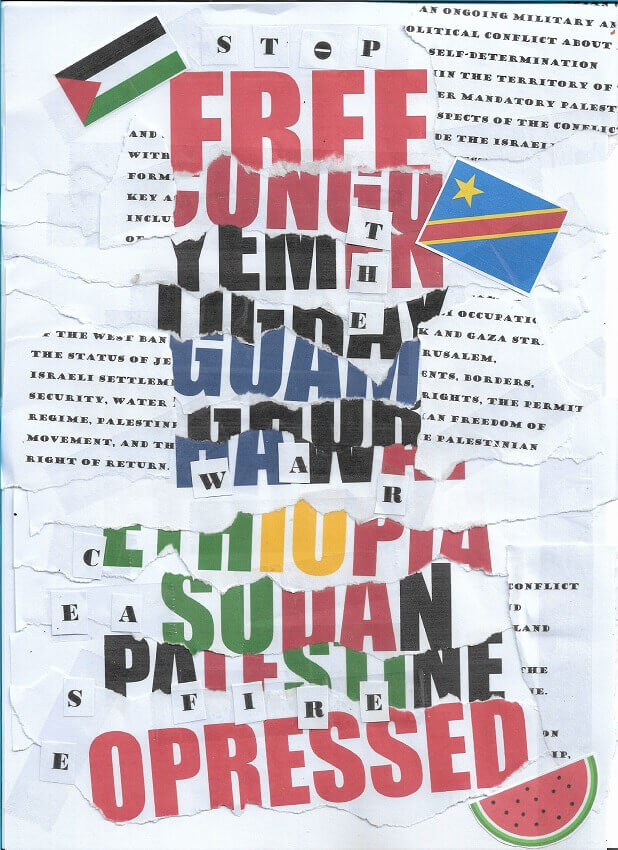 STOP
FREE
CONGO
YEMEN
THE
GUAM
HAWAII
WAR
ETHIOPIA
SUDAN
PALESTINE
CEASE
FIRE
OPRESSED
AN ONGOING MILITARY AN
OLITICAL CONFLICT ABOUT
SELF-DETERMINATION
IN THE TERRITORY OF
ER MANDATORY PALEST
SPECTS OF THE CONFLIC
DE THE ISRAELI
AND
WITH
FORM
KEY A
INCLU
OF
F THE WEST BAN
THE STATUS OF JE
ISRAELI SETTLEM
SECURITY, WATER
REGIME, PALESTINI
MOVEMENT, AND TH
RIGHT OF RETURN.
I OCCUPATIO
K AND GAZA STR
RUSALEM,
ENTS, BORDERS,
RIGHTS, THE PERMIT
AN FREEDOM OF
E PALESTINIAN
CONFLICT
D
LAND
THE
NE.
ON
IP,